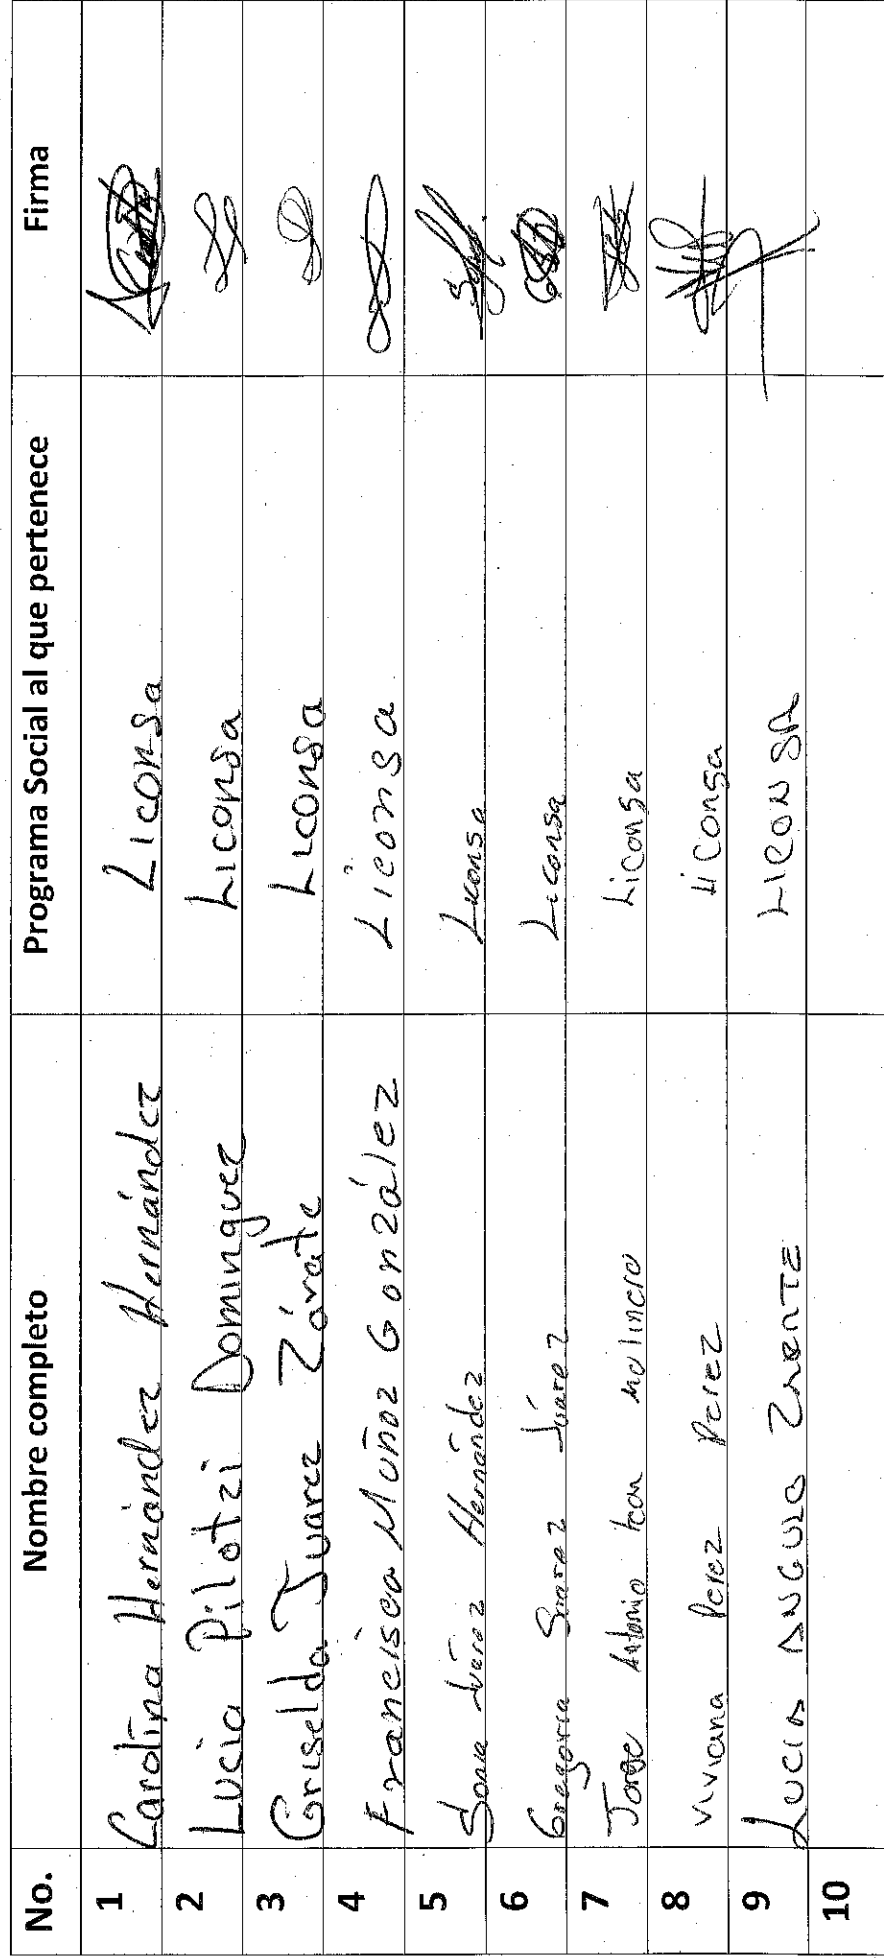 No. Nombre completo Programa Social al que pertenece Firma
1 Carolina Hernández Hernández Liconsa
2 Lucia Pilotzi Dominguez Liconsa
3 Griselda Juarez Zárate Liconsa
4 Francisca Muñoz González Liconsa
5 Sonia Juárez Hernández Liconsa
6 Gregoria Juárez Liconsa
7 Jorge Antonio Molinero Liconsa
8 Viviana Perez Perez Liconsa
9 LUCIA ANGULO LICONSA
10